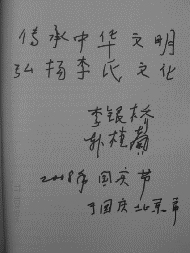 传承中华文明
弘扬李氏文化
李银桥
韩桂馨
2008年国庆节
于国庆北京市